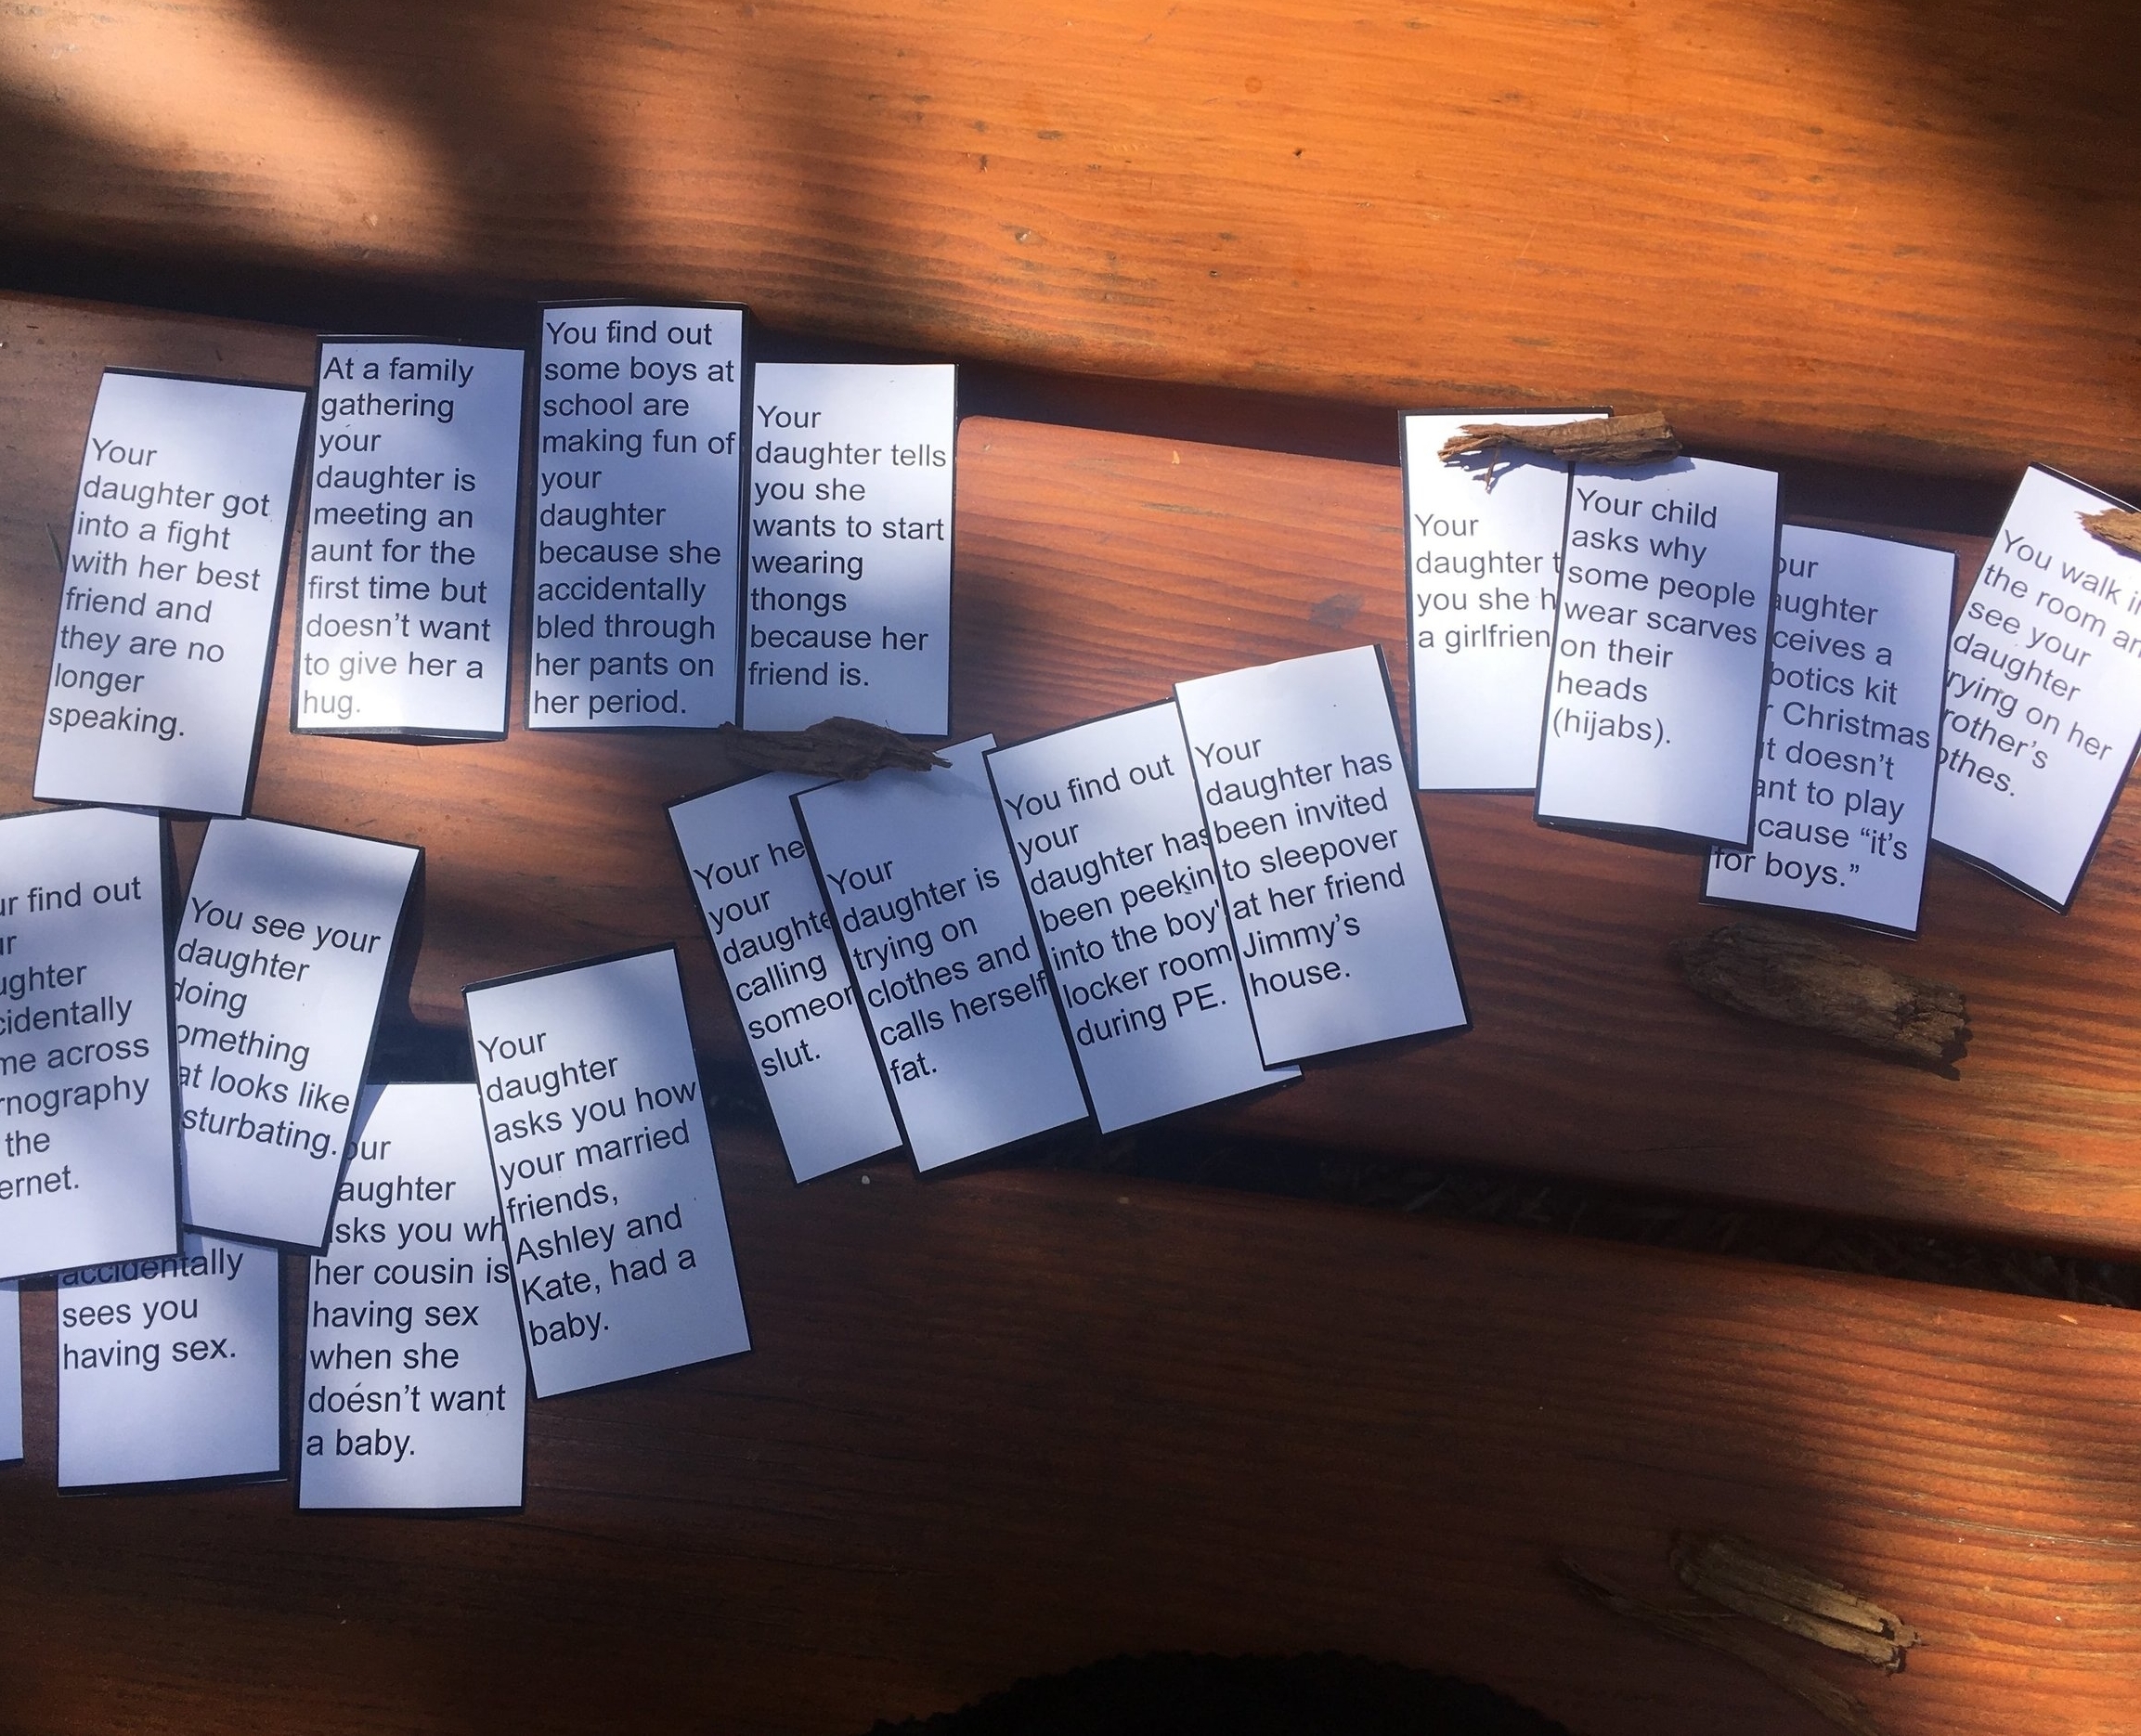 Your
daughter got
into a fight
with her best
friend and
they are no
longer
speaking.
At a family
gathering
your
daughter is
meeting an
aunt for the
first time but
doesn't want
to give her a
hug.
You find out
some boys at
school are
making fun of
your
daughter
because she
accidentally
bled through
her pants on
her period.
Your
daughter tells
you she
wants to start
wearing
thongs
because her
friend is.
Your
daughter t
you she h
a girlfrien
Your child
asks why
some people
wear scarves
on their
heads
(hijabs).
our
aughter
ceives a
botics kit
r Christmas
t doesn't
ant to play
cause “it's
for boys.”
You walk i
the room an
see your
daughter
rying on her
rother's
othes.
ur find out
ur
ughter
cidentally
me across
rnography
the
ernet.
You see your
daughter
doing
omething
at looks like
sturbating.
accidentally
sees you
having sex.
our
aughter
sks you wh
her cousin is
having sex
when she
doesn't want
a baby.
Your
daughter
asks you how
your married
friends,
Ashley and
Kate, had a
baby.
Your he
your
daughte
calling
someon
slut.
Your
daughter is
trying on
clothes and
calls herself
fat.
You find out
your
daughter has
been peekin
into the boy'
locker room
during PE.
Your
daughter has
been invited
to sleepover
at her friend
Jimmy's
house.